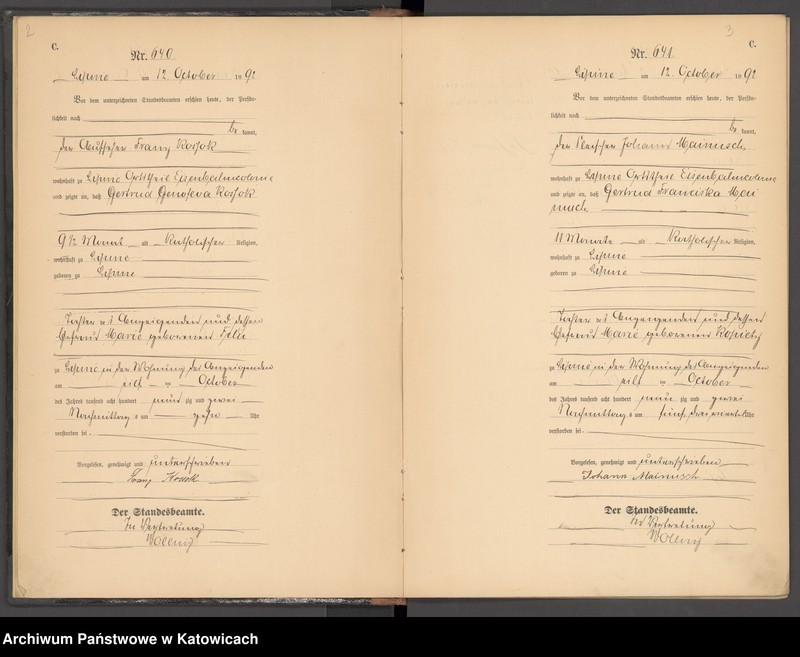 2
C.
Nr. 640
Lipine am 12 October 1892
Vor dem unterzeichneten Standesbeamten erschien heute, der Persön-
lichkeit nach
be kannt,
der Aufseher Franz Kossok
wohnhaft zu Lipine Ortstheil Eisenbahncolonie
und zeigte an, daß Gertrud Genofeva Kossok
9 1/2 Monat alt Katholischer Religion,
wohnhaft zu Lipine
geboren zu Lipine
Tochter des Anzeigenden und dessen
Ehefrau Marie geborenen
zu Lipine in der Wohnung des Anzeigenden
am elf ten October
des Jahres tausend acht hundert neun zig und zwei
Nachmittags um zehn Uhr
verstorben sei.
Vorgelesen, genehmigt und unterschrieben
Franz Kossok
Der Standesbeamte.
In Vertretung
3
C.
Nr. 641
Lipine am 12. October 1892
Vor dem unterzeichneten Standesbeamten erschien heute, der Persön-
lichkeit nach
be kannt,
der Fleischer Johann Mainusch
wohnhaft zu Lipine Ortstheil Eisenbahncolonie
und zeigte an, daß Gertrud Franciska Mai
nusch
11 Monate alt Katholischer Religion,
wohnhaft zu Lipine
geboren zu Lipine
Tochter des Anzeigenden und dessen
Ehefrau Marie geborenen
zu Lipine in der Wohnung des Anzeigenden
am elf ten October
des Jahres tausend acht hundert neun zig und zwei
Nachmittags um fünf dreiviertel Uhr
verstorben sei.
Vorgelesen, genehmigt und unterschrieben
Johann Mainusch
Der Standesbeamte.
In Vertretung
Archiwum Państwowe w Katowicach